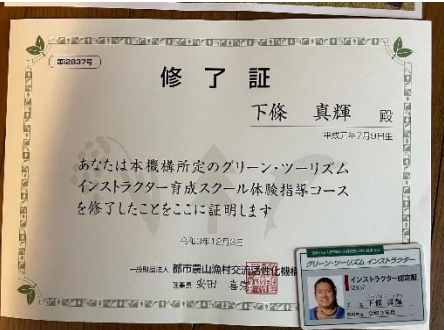 第12837号
修了証
下條 真輝 殿
平成元年7月9日生
あなたは本機構所定のグリーン・ツーリズム
インストラクター育成スクール体験指導コース
を修了したことをここに証明します
令和3年12月3日
一般財団法人 都市農山漁村交流活性化機構
理事長 安田
グリーン・ツーリズム インストラクター
インストラクター認定証
下條 真輝